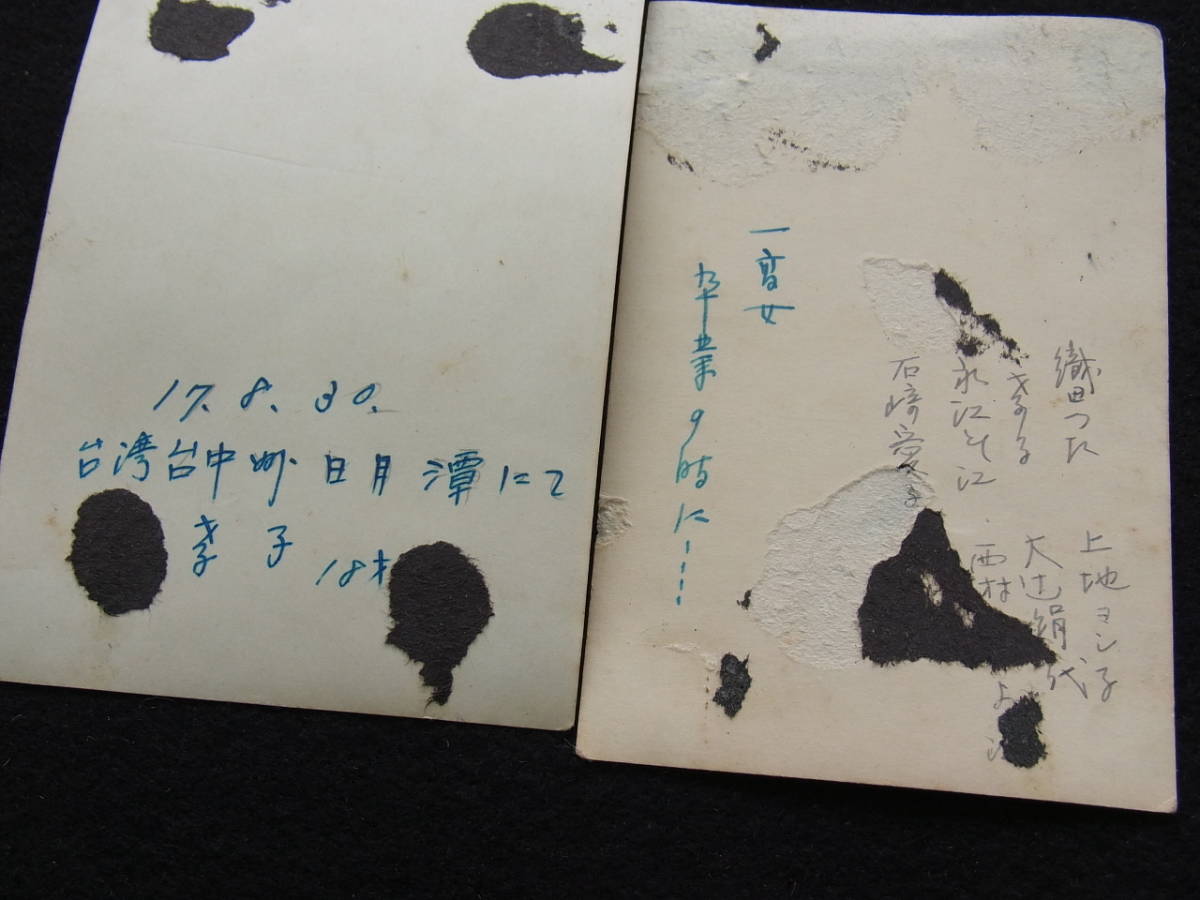 17.8.30.
台湾台中州日月潭にて
孝子 18才
一高女
卆業の時に----
織田つた
孝子
永江
石崎愛子
上地ヨシ子
大辻絹代
西村